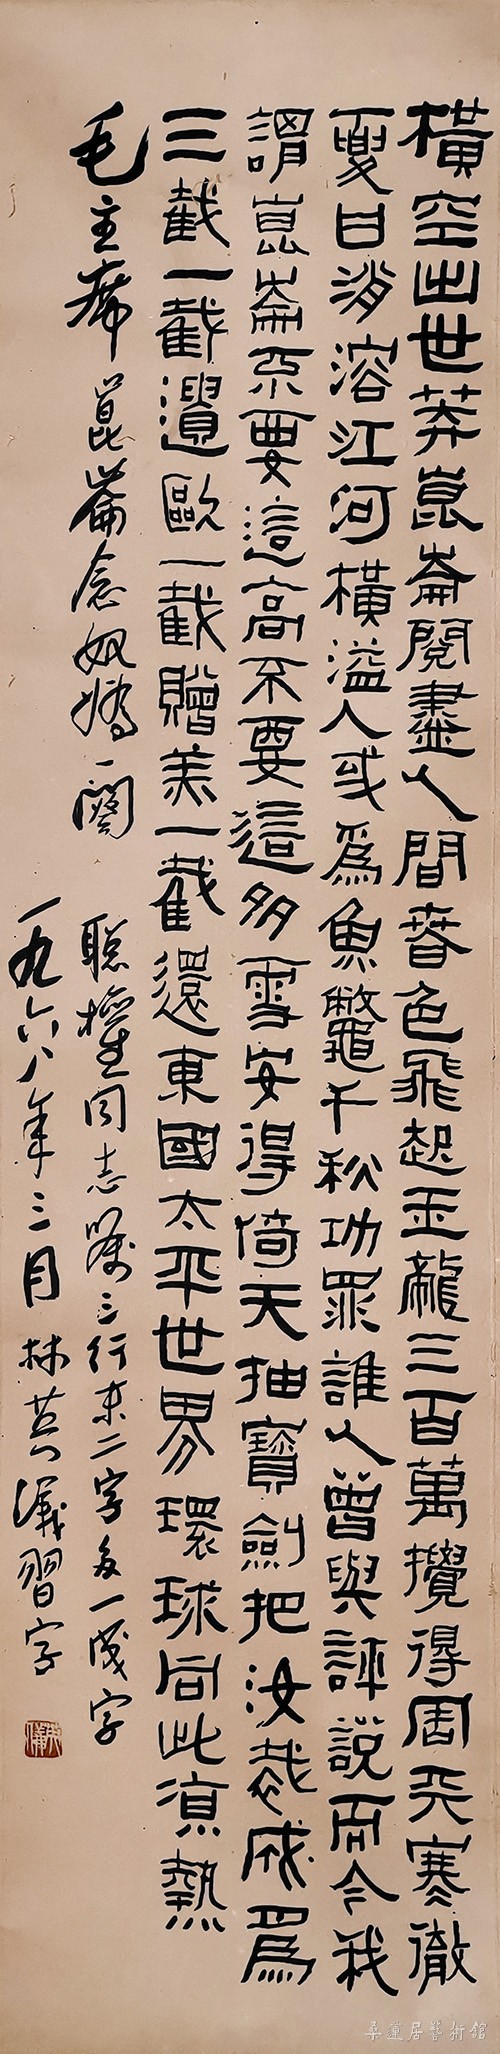 橫空出世莽崑崙閱盡人間春色飛起玉龍三百萬攪得周天寒徹
夏日消溶江河橫溢人或爲魚鼈千秋功罪誰人曾與評說而今我
謂崑崙不要這高不要這多雪安得倚天抽寶劍把汝裁成爲
三截一截遺歐一截贈美一截還東國太平世界環球同此涼熱
毛主席崑崙念奴嬌一闋
聰權同志囑 三行末二字多一成字
一九六八年三月 林英儀習字
英儀
桑蓮居藝術館